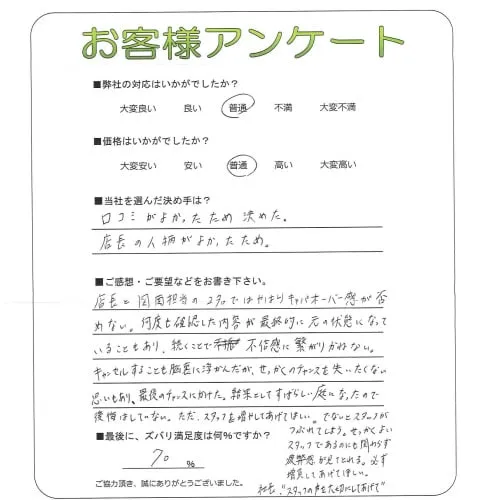 お客様アンケート
■弊社の対応はいかがでしたか？
大変良い 良い 普通 不満 大変不満
■価格はいかがでしたか？
大変安い 安い 普通 高い 大変高い
■当社を選んだ決め手は？
口コミがよかったため 決めた。
店長の人柄がよかったため。
■ご感想・ご要望などをお書き下さい。
店長と図面担当の2名ではやはりキャパオーバー感が否
めない。何度も確認した内容が最終的に元の状態になって
いることもあり、続くことで 不信感に繋がりかねない。
キャンセルすることも脳裏に浮かんだが、せっかくのチャンスを失いたくない
思いもあり、最後のチャンスにかけた。結果としてすばらしい庭になったので
後悔はしていない。ただ、スタッフを増やしてあげてほしい。でないとスタッフが
つぶれてしまう。せっかくよい
スタッフであるのにも関わらず
疲弊感が見てとれる。必ず
増員してあげてほしい。
社長、"スタッフの声を大切にしてあげて"
■最後に、ズバリ満足度は何％ですか？
70 %
ご協力頂き、誠にありがとうございました。